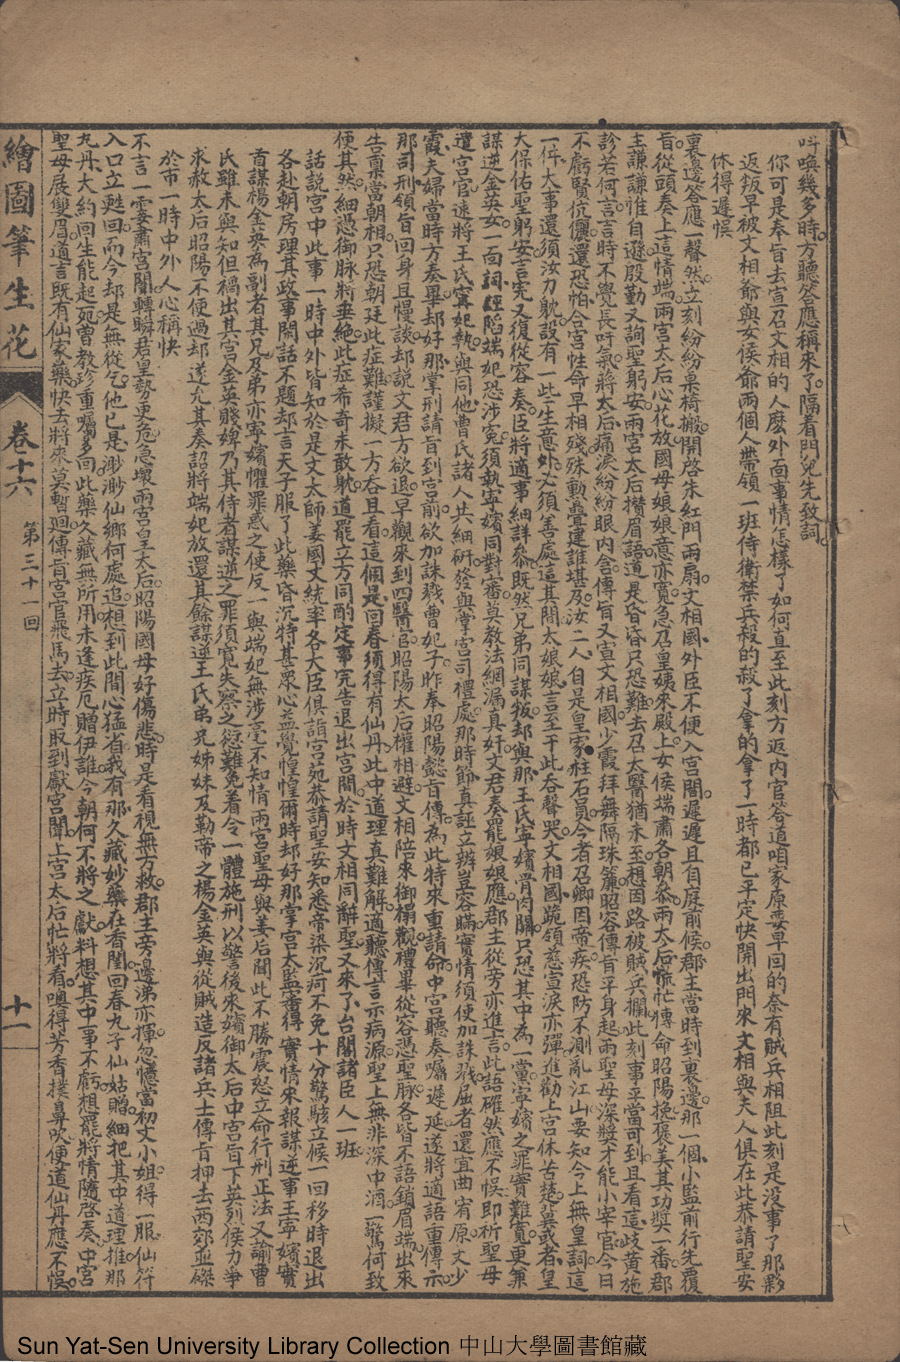 叫喚幾多時方聽答應稱來了隔着門兒先致詞
你可是奉旨去宣召文相的人麽外面事情怎樣了如何直至此刻方返內官答道咱家原要早回的奈有賊兵相阻此刻是沒事了那夥
返叛早被文相爺與女侯爺兩個人帶領一班侍衛禁兵殺的殺了拿的拿了一時都已平定快開出門來文相與夫人俱在此恭請聖安
休得遲悞
裏邊答應一聲然立刻紛紛梟椅搬開啓朱紅門兩扇文相國外臣不便入宮闈遲遲且自庭前候郡主當時到裏邊那一個小監前行先覆
旨從頭奏上這情端兩宮太后心花放國母娘娘意亦寬急召皇姨來殿上女侯端肅各朝叅兩太后慌忙傳命昭陽挽褒美其功奬一番郡
主謙謙惟自遜殷勤又詢聖躬安兩宮太后攢眉語道是昏昏只恐難去召太醫猶未至想因路被賊兵攔此刻事平當可到且看這歧黃施
診若何言言時不覺長吁氣將太后痛淚紛紛眼內含傳旨又宣文相國少霞拜舞隔珠簾昭容傳旨平身起兩聖母深奬才能小宰官今日
不虧賢伉儷還恐怕合宮性命早相殘殊勳疊建誰堪及汝二人自是皇家柱石員今者召卿因帝疾恐防不測亂江山要知今上無皇詞這
一件大事還須汝力躭設有一些生意外必須善處這其間太娘娘言至于此吞聲哭文相國跪領慈宣淚亦彈進勸上宮休苦楚冀或者皇
大保佑聖躬安言完又復從容奏臣將適事細詳叅既然兄弟同謀叛却與那王氏寧嬪骨肉關只恐其中為一黨寧嬪之罪實難寬更兼
謀逆金英女一面詞誣陷端妃恐涉寃須執寧嬪同對審莫教法網漏真奸文君奏罷娘娘應郡主從旁亦進言此語確然應不悞即祈聖母
遣宮官速將王氏寧妃執與同他曹氏諸人共細研發與掌宮司禮處那時節真誣立辨豈容瞞實情須使加誅戮屈者還宜曲宥原文少
霞夫婦當時方奏畢却好那掌刑請旨到宮前欲加誅戮曹妃子昨奉昭陽懿旨傳為此特來重請命中宮聽奏囑遲延遂將適語重傳示
那司刑領旨回身且慢談却說文君方欲退早觀來到四醫官昭陽太后權相避文相陪來御榻觀禮畢從容憑聖脉各皆不語鎖眉端出來
告稟當朝相只恐朝廷此症難謹擬一方吞且看這個是回春須得有仙丹此中道理真難解適聽傳言示病源聖上無非深中酒一驚何致
使其然細憑御脉將垂絶此症希奇未敢躭道罷立方同酌定事完告退出宮間於時文相同辭聖又來了台閣諸臣人一班
話說宮中此事一時中外皆知於是文太師姜國丈統率各大臣俱詣宮苑恭請聖安知悉帝染沉疴不免十分驚駭立候一回移時退出
各赴朝房理其政事閑話不題却言天子服了此藥昏沉特甚衆心益覺惶惶爾時却好那掌宮太監審得實情來報謀逆事王寧嬪實
首謀楊金英為副者其兄及弟亦寧嬪懼罪惑之使反一與端妃無涉毫不知情兩宮聖母與姜后聞此不勝震怒立命行刑正法又諭曹
氏雖未與知但禍出其宮金英賤婢乃其侍者謀逆之罪須寬失察之愆難免着令一體施刑以警後來嬪御太后中宮旨下英烈侯力爭
求赦太后昭陽不便過却遂允其奏詔將端妃放還其餘謀逆王氏弟兄姊妹及勒帝之楊金英與從賊造反諸兵士傳旨押去西郊並磔
於市一時中外人心稱快
不言一霎肅宮闈轉瞬君皇勢更危急壞兩宮皇太后昭陽國母好傷悲時是看視無方救郡主旁邊涕亦揮忽憶當初文小姐得一服仙符
入口立甦回而今却是無從乞他已是渺渺仙鄉何處追想到此間心猛省我有那久藏妙藥在香閨回春九子仙姑贈細把其中道理推那
九丹大約回生能起死曾教珍重囑多回此藥久藏無所用未逢疾厄贈伊誰今朝何不將之獻料想其中事不虧想罷將情隨啓奏中宮
聖母展雙眉道言既有仙家藥快去將來莫暫廻傳旨宮官飛馬去立時取到獻宮闈上宮太后忙將看噴得芳香撲鼻吹便道仙丹應不悞
繪圖筆生花
卷十六 第三十一回
十一
Sun Yat-Sen University Library Collection 中山大學圖書館藏